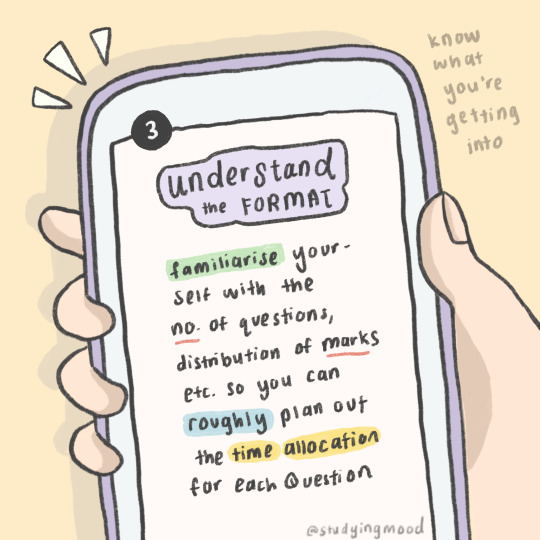 know
what
you're
getting
into
3
understand
the FORMAT
familiarise your-
self with the
no. of questions,
distribution of marks
etc. so you can
roughly plan out
the time allocation
for each Question
@studyingmood